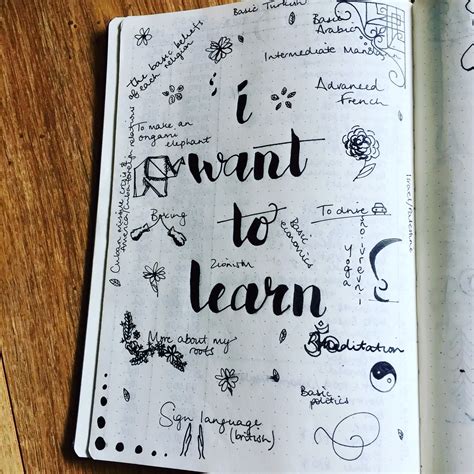 Basic Turkish
Basic
Arabic
Intermediate
the basic beliefs
of each religion
Advanced
French
i
To make an
origami
elephant
want
Cuban missile crisis &
America/Cuba foreign relations
Israel/Palestine
Boxing
to
To drive
Basic
economics
Yoga
Zionism
learn
More about my
roots
Meditation
Basic
politics
Sign language
(british)